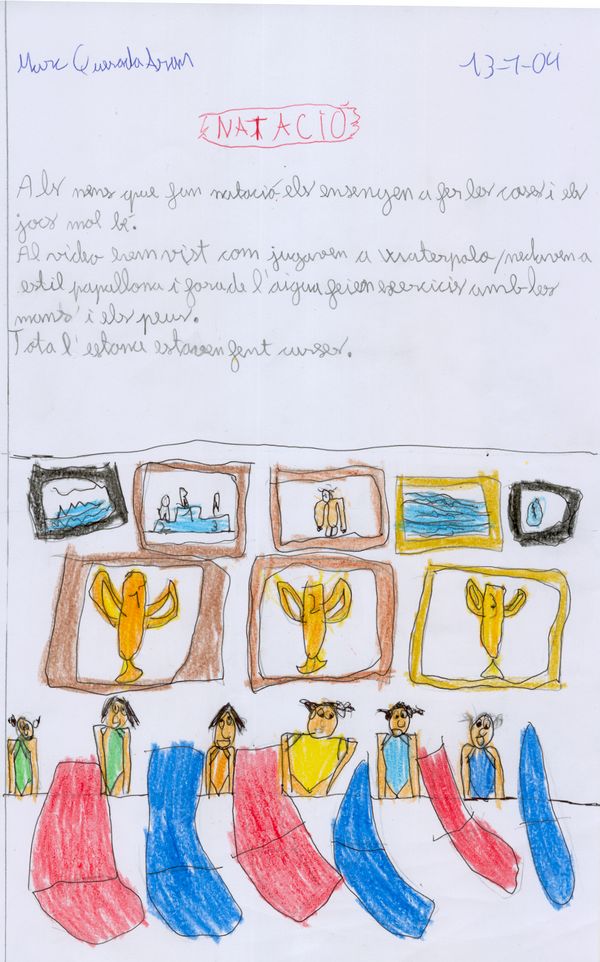 Marc Quesada
13-1-04
NATACIÓ
Als nens que fan natació els ensenyen a fer les coses i els
jocs mol bé.
Al video hem vist com jugaven a waterpolo, nedaven a
estil papallona i fora de l'aigua feien exercicis amb les
mans i els peus.
Tota l'estona estaven fent curses.
3